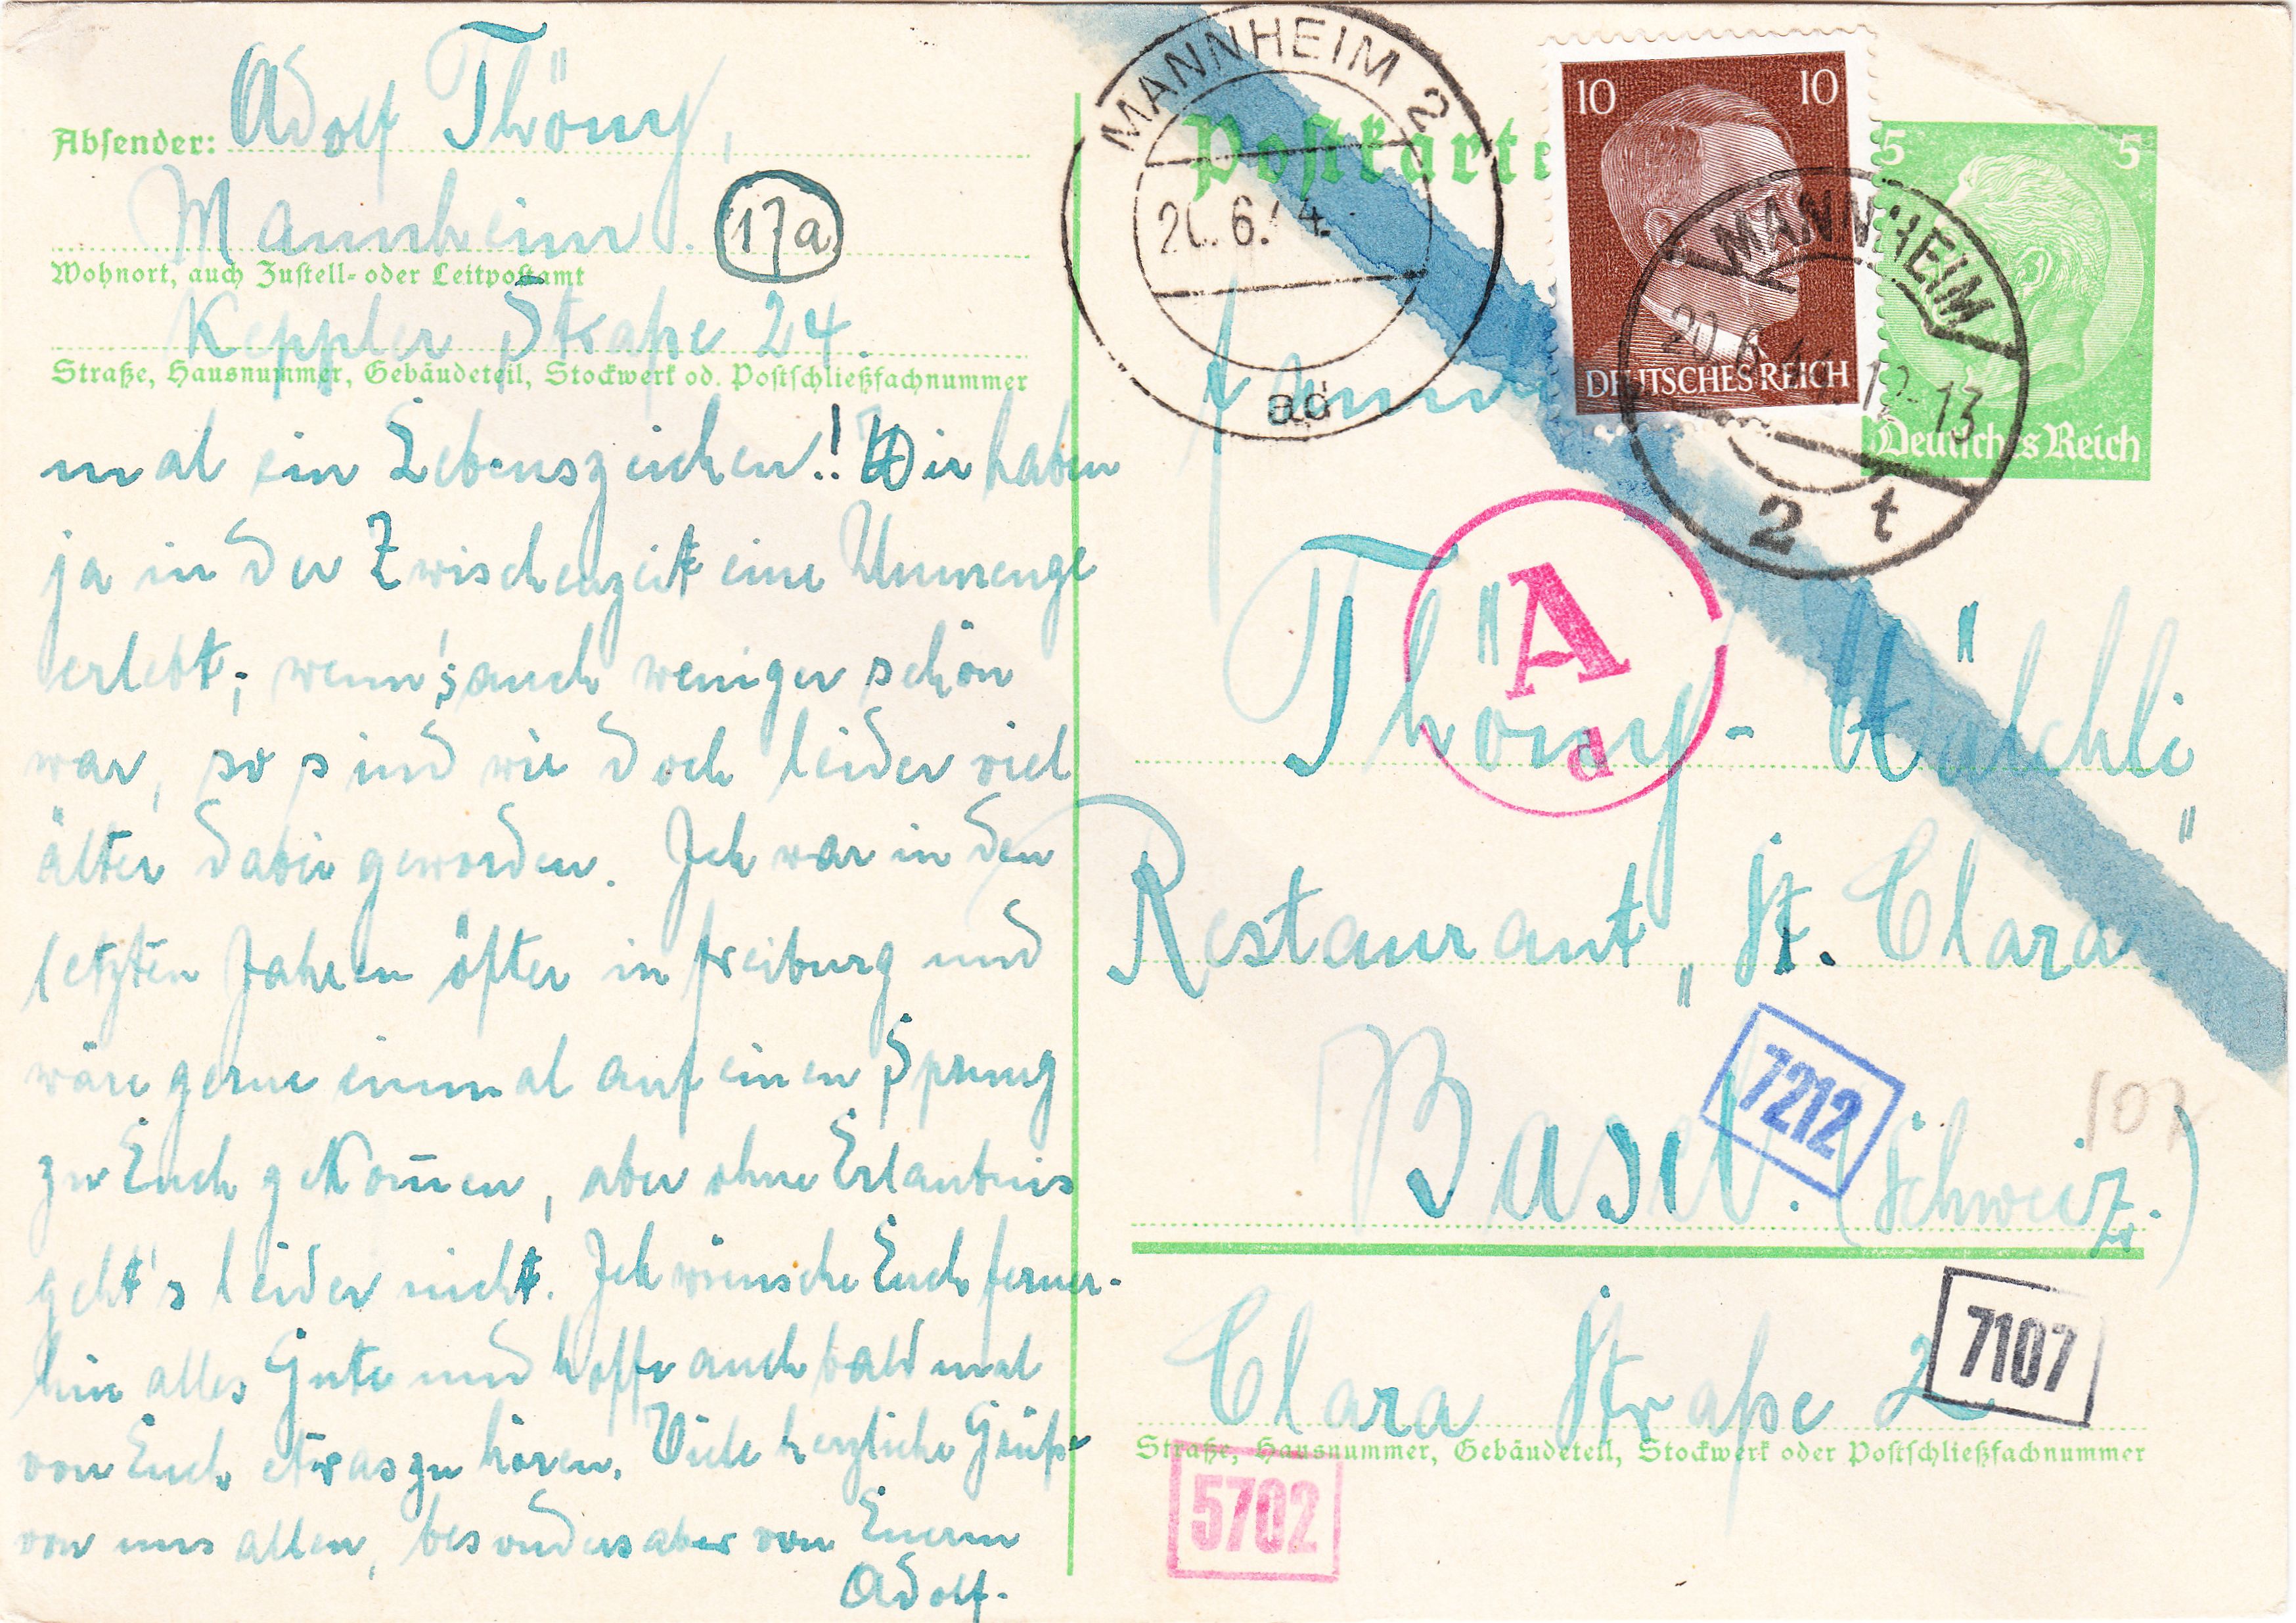 Absender: Adolf Thöny,
Mannheim. 17a
Wohnort, auch Zustell- oder Leitpostamt
Keppler Straße 24.
Straße, Hausnummer, Gebäudeteil, Stockwerk od. Postschließfachnummer
mal ein Lebenszeichen!! Wir haben
ja in der Zwischenzeit eine Unmenge
erlebt; wenn's auch weniger schön
war, so sind wir doch leider viel
älter dabei geworden. Ich war in den
letzten Jahren öfter in Freiburg und
wäre gerne einmal auf einen Sprung
zu Euch gekom̄en, aber ohne Erlaubnis
geht's leider nicht. Ich wünsche Euch ferner-
hin alles Gute und hoffe auch bald mal
von Euch etwas zu hören. Viele herzliche Grüße
von uns allen, besonders aber von Euerm
Adolf.
Postkarte
MANNHEIM 2
6. 4.
ad
10 10
DEUTSCHES REICH
5 5
Deutsches Reich
MANNHEIM
20.6.44.12-13
2 t
A
d
Thöny-Wälchli
Restaurant „St. Clara"
Basel. (Schweiz.)
7212
107
Clara Straße 2
7107
Straße, Hausnummer, Gebäudeteil, Stockwerk oder Postschließfachnummer
5702